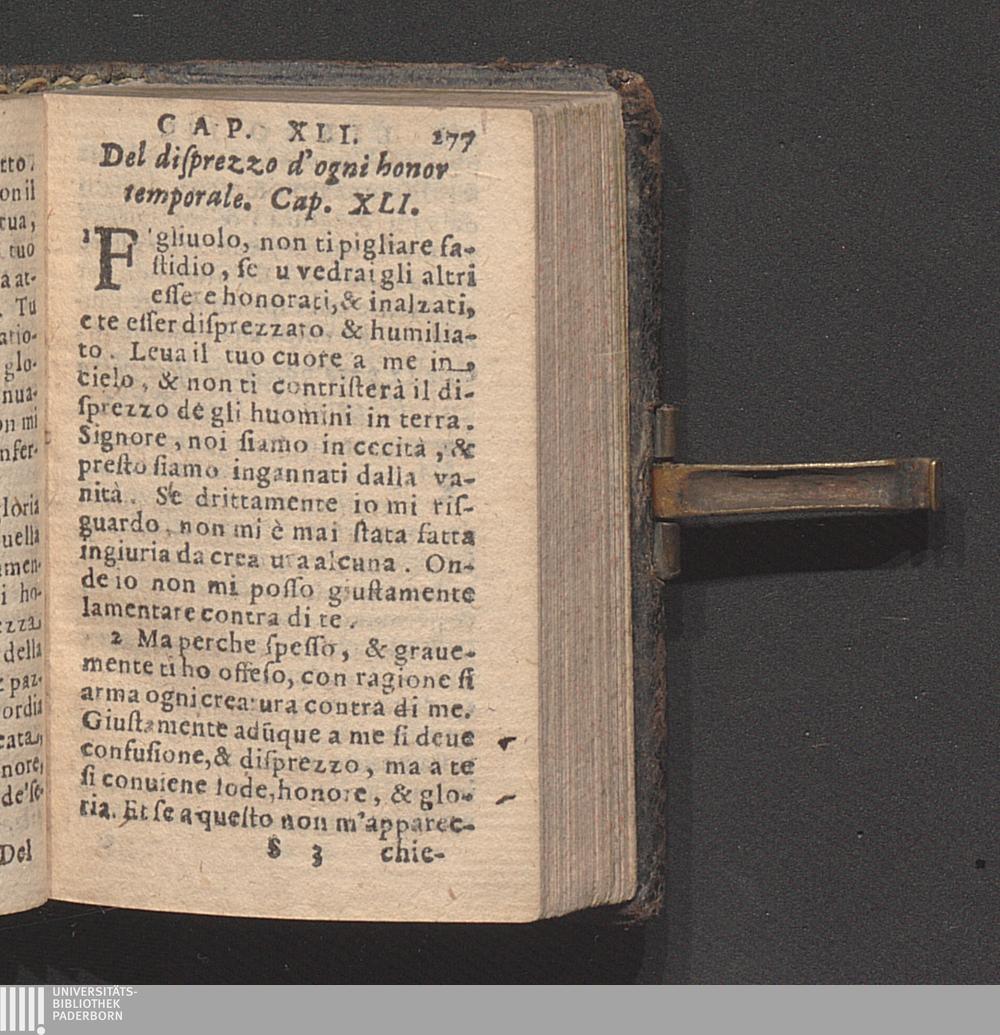 tto.
on il
tua,
tuo
a at-
. Tu
atio-
glo-
nua-
on mi
nfer-
lòria
uella
amen-
i ho-
ezza
della
e paz-
ordia
cata,
nore,
de'se-
Del
CAP. XLI. 277
Del diſprezzo d'ogni honor
temporale. Cap. XLI.
1 F'gliuolo, non ti pigliare fa-
ſtidio, ſe u vedrai gli altri
eſſere honorati, & inalzati,
e te eſſer diſprezzato & humilia-
to. Leua il tuo cuore a me in
cielo, & non ti contriſterà il di-
ſprezzo de gli huomini in terra.
Signore, noi ſiamo in cecità, &
preſto ſiamo ingannati dalla va-
nità. Se drittamente io mi riſ-
guardo, non mi è mai ſtata fatta
ingiuria da crea ura alcuna. On-
de io non mi poſſo giuſtamente
lamentare contra di te.
2 Ma perche ſpeſſo, & graue-
mente ti ho offeſo, con ragione ſi
arma ogni creatura contra di me.
Giuſtamente adũque a me ſi deue
confuſione, & diſprezzo, ma a te
ſi conuiene lode, honore, & glo-
ria. Et ſe a queſto non m'apparec-
S 3 chie-
UNIVERSITÄTS-
BIBLIOTHEK
PADERBORN